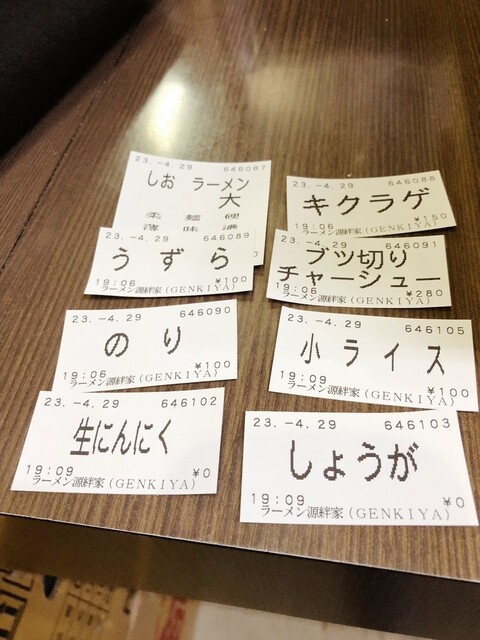 23.-4.29 646087
しお ラーメン
大
柔 麺 硬
薄 味 濃
23.-4.29 646088
キクラゲ
¥150
ラーメン源絆家(GENKIYA)
23.-4.29 646089
うずら
19:06 ¥100
ラーメン源絆家(GENKIYA)
23.-4.29 646091
ブツ切り
チャーシュー
19:06 ¥280
ラーメン源絆家(GENKIYA)
23.-4.29 646090
のり
19:06 ¥100
ラーメン源絆家(GENKIYA)
23.-4.29 646105
小ライス
19:09 ¥100
ラーメン源絆家(GENKIYA)
23.-4.29 646102
生にんにく
19:09 ¥0
ラーメン源絆家(GENKIYA)
23.-4.29 646103
しょうが
19:09 ¥0
ラーメン源絆家(GENKIYA)